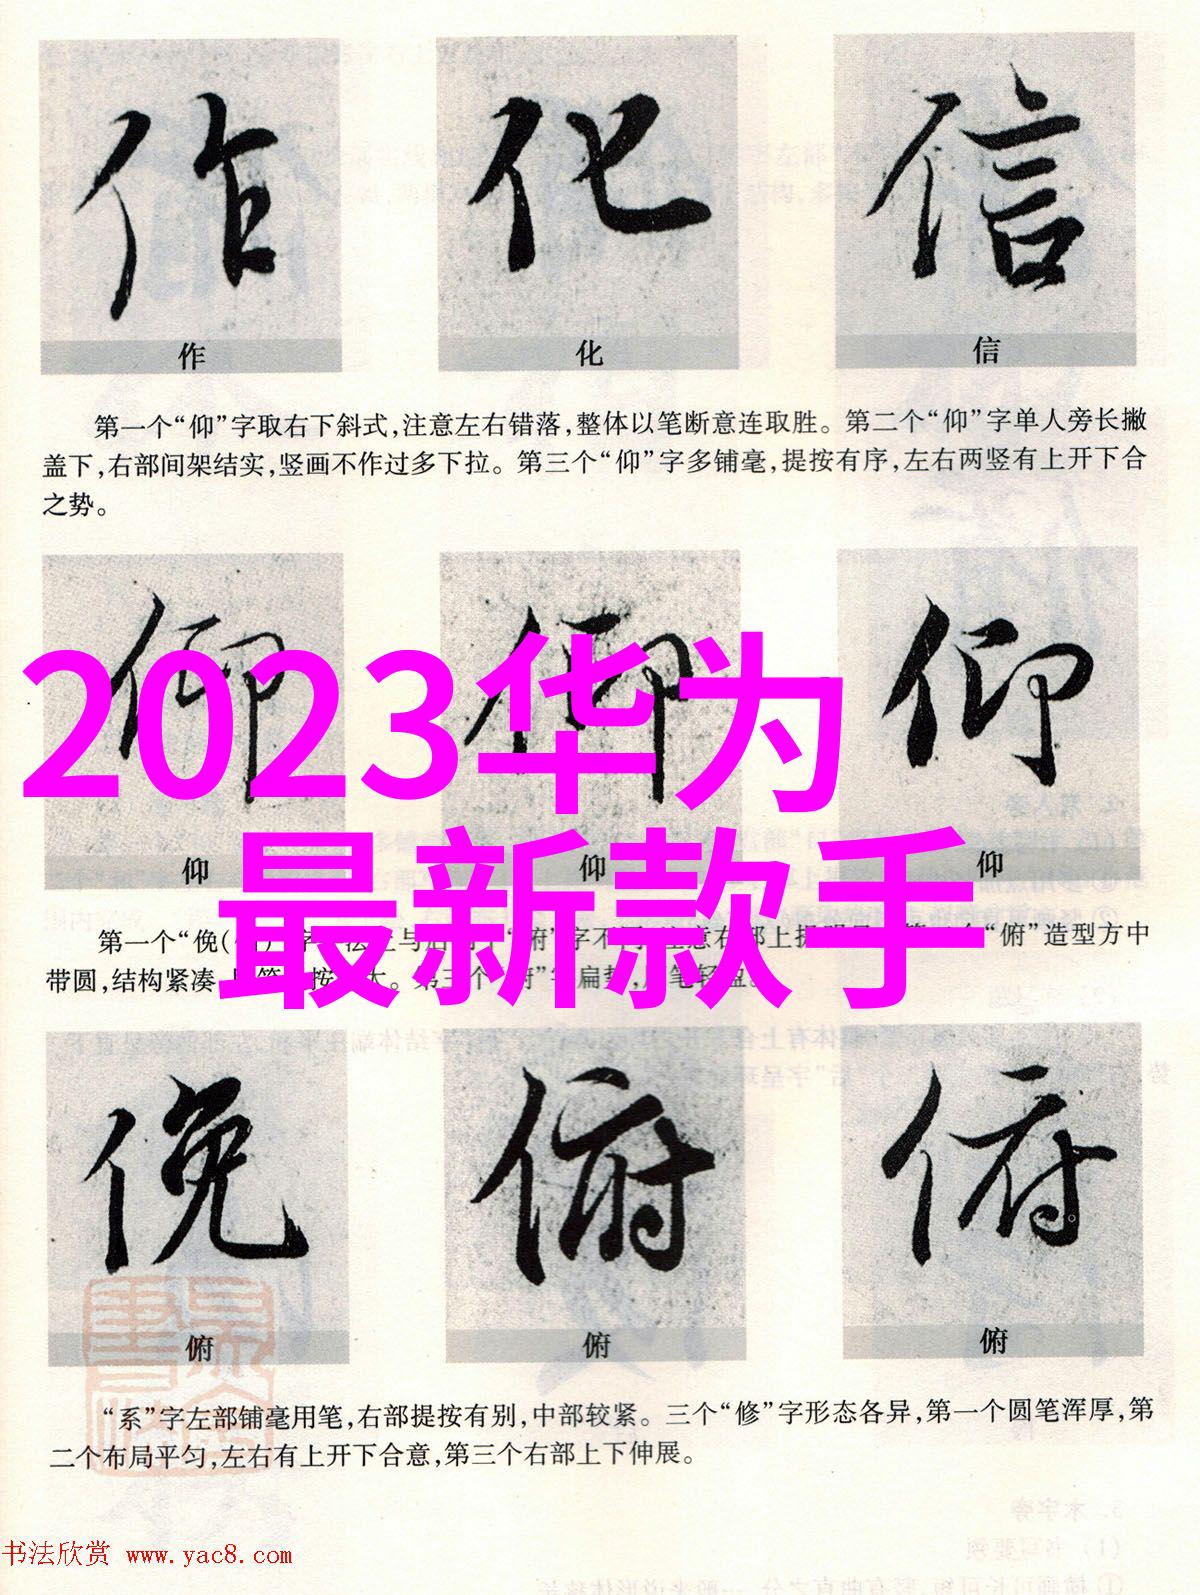 作 化 信
作 化 信
第一个“仰”字取右下斜式,注意左右错落,整体以笔断意连取胜。第二个“仰”字单人旁长撇
盖下,右部间架结实,竖画不作过多下拉。第三个“仰”字多铺毫,提按有序,左右两竖有上开下合
之势。
仰 仰 仰
2023华为
最新款手
仰 仰 仰
第一个“俛( 字 与后 “俯”字不同 注意右部上 “俯”造型方中
带圆,结构紧凑 按 大。第三个“俯”字扁 笔轻盈。
俛 俯 俯
俯 俯 俯
“系”字左部铺毫用笔,右部提按有别,中部较紧。三个“修”字形态各异,第一个圆笔浑厚,第
二个布局平匀,左右有上开下合意,第三个右部上下伸展。
书法欣赏 www.yac8.com